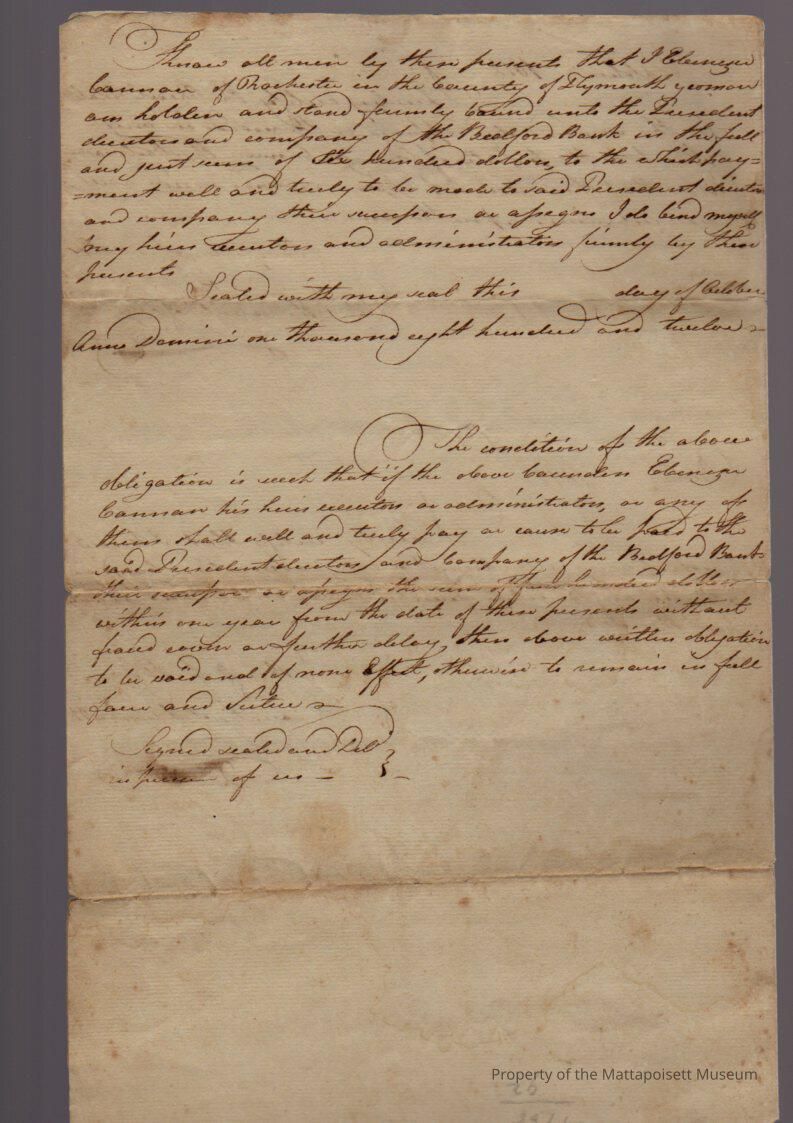 Know all men by these presents that I Ebenezer
Cannan of Rochester in the County of Plymouth yeoman
am holden and stand firmly bound unto the President
directors and company of the Bedford Bank in the full
and just sum of Six hundred dollars, to the which pay=
=ment well and truly to be made to said President directors
and company their successors or assigns I do bind myself
my heirs executors and administrators firmly by these
presents
Sealed with my seal this day of October
Anno Domini one thousand eight hundred and twelve
The condition of the above
obligation is such that if the above bounden Ebenezer
Cannan his heirs executors or administrators, or any of
them shall well and truly pay or cause to be paid to the
said President directors and Company of the Bedford Bank
their or assigns the sum of hundred dollars
within one year from the date of these presents without
fraud or further delay, then above written obligation
to be void and of none Effect, otherwise to remain in full
force and
Signed sealed and Deld
in of us —
Property of the Mattapoisett Museum